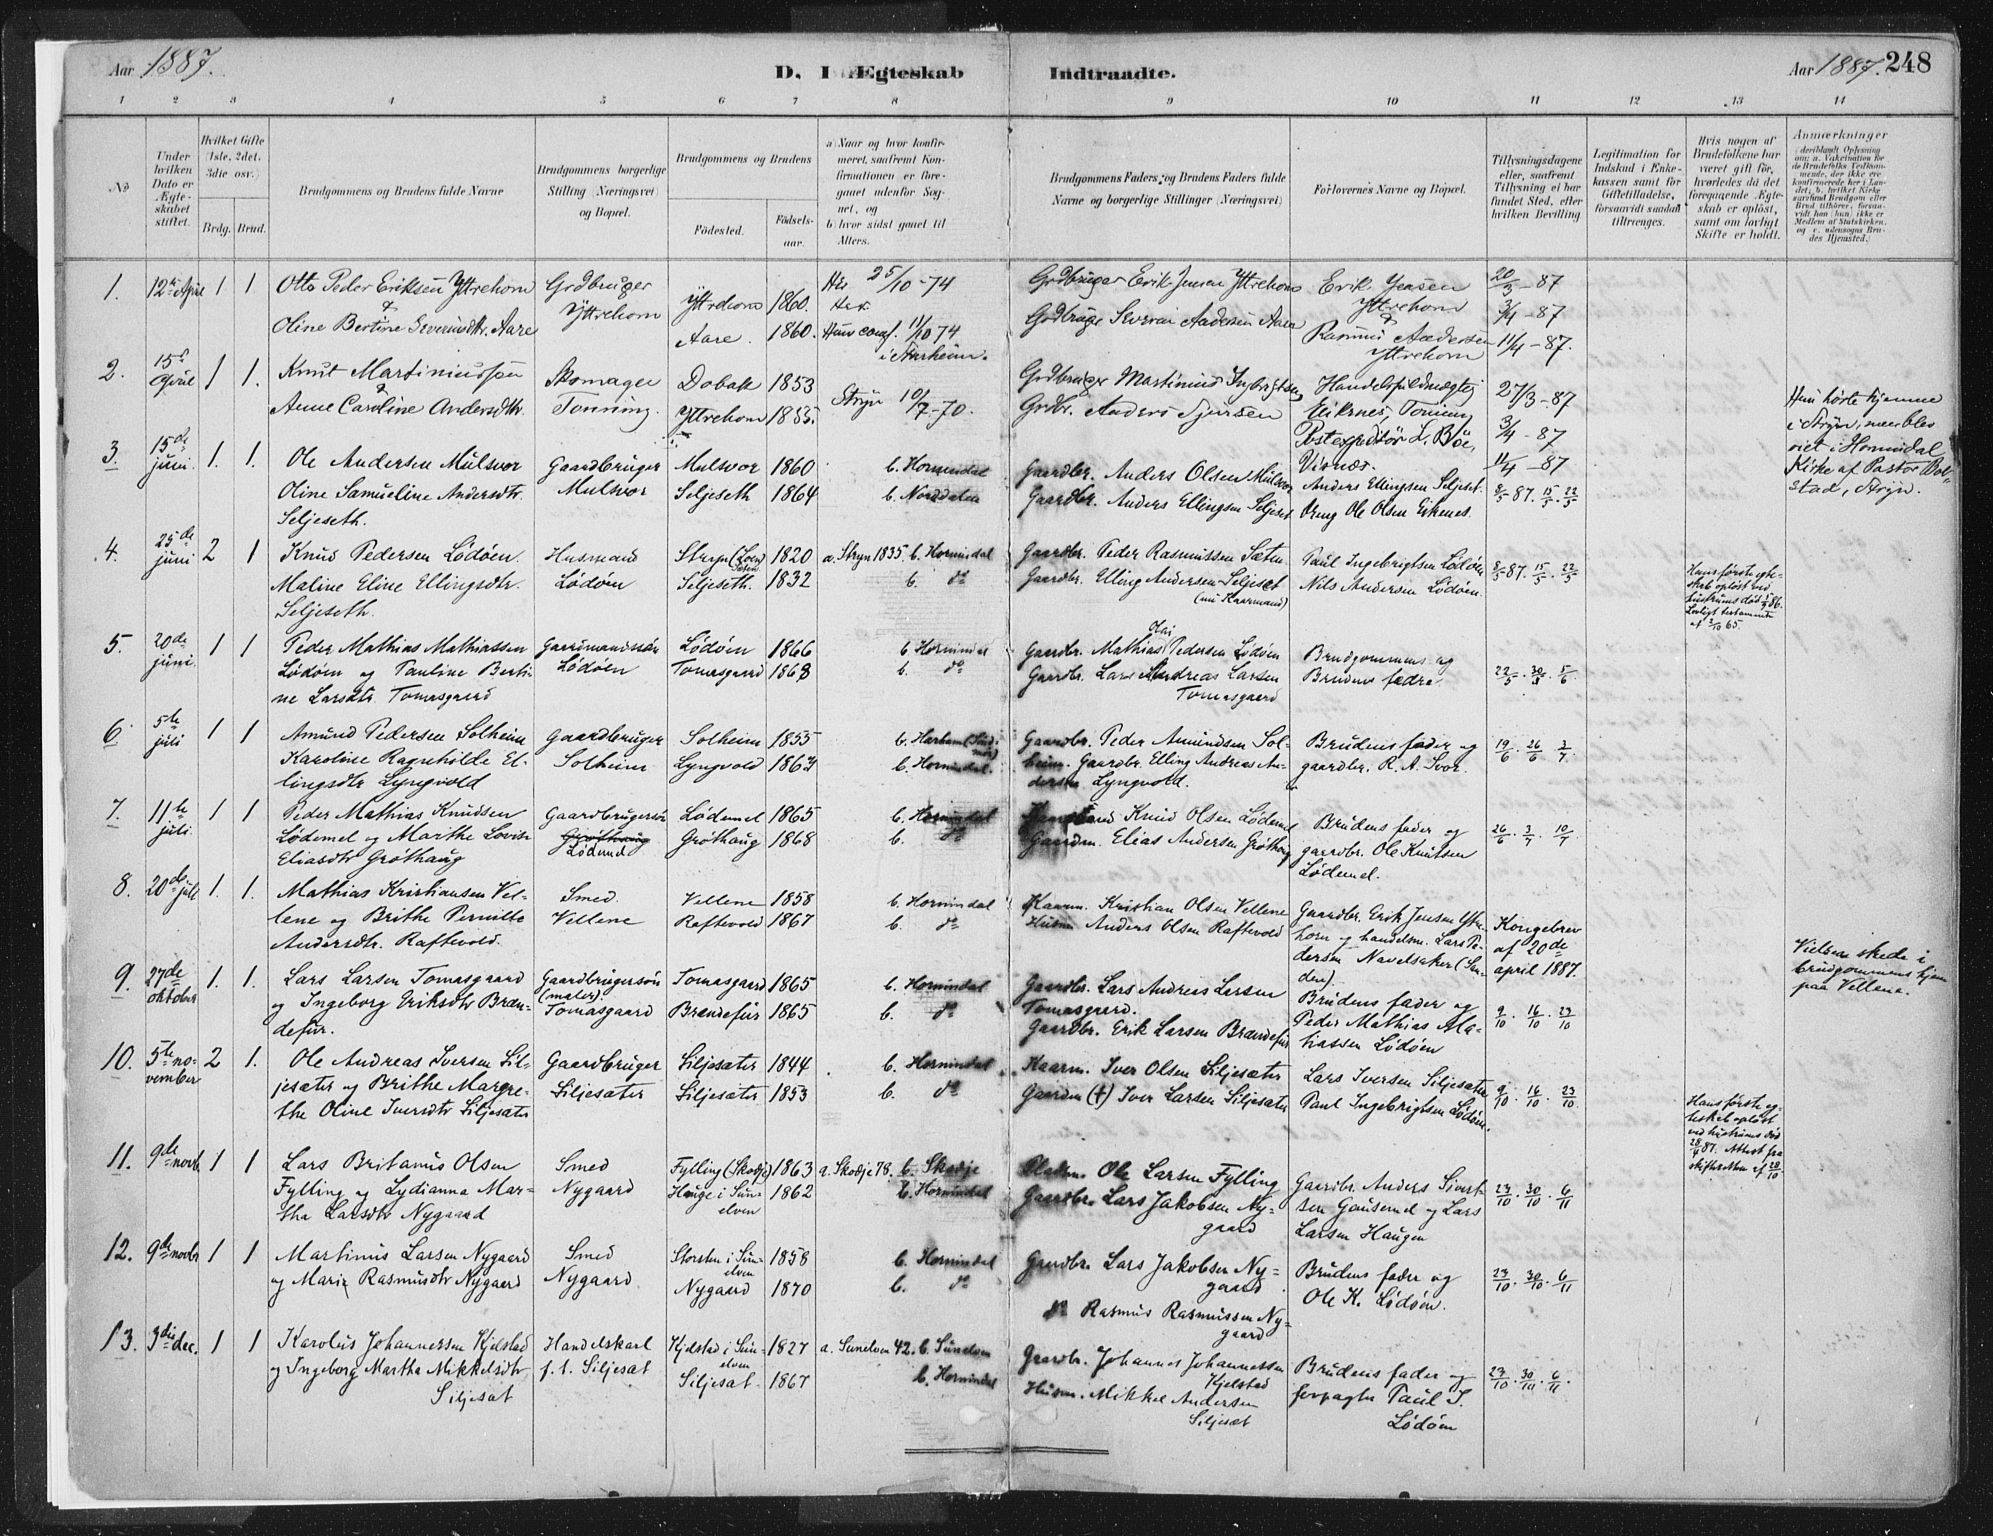 Aar 1887.
D. I Ægteskab Indtraadte.
Aar 1887. 248
1 2 3 4 5 6 7 8 9 10 11 12 13 14
No
Under hvilken Dato er Ægteskabet stiftet.
Hvilket Gifte (1ste, 2det, 3die osv.)
Brdg. Brud.
Brudgommens og Brudens fulde Navne
Brudgommens borgerlige Stilling (Næringsvei) og Bopæl.
Brudgommens og Brudens
Fødested.
Fødselsaar.
a) Naar og hvor konfirmeret, saafremt Konfirmationen er foregaaet udenfor Sognet, og
b) hvor sidst gaaet til Alters.
Brudgommens Faders og Brudens Faders fulde Navne og borgerlige Stillinger (Næringsvei)
Forlovernes Navne og Bopæl.
Tillysningsdagene eller, saafremt Tillysning ei har fundet Sted, efter hvilken Bevilling.
Legitimation for Indskud i Enkekassen samt for Giftetilladelse, forsaavidt saadan tiltrænges.
Hvis nogen af Brudefolkene har været gift før, hvorledes da det foregaaende Ægteskab er opløst, samt om lovligt Skifte er holdt.
Anmærkninger
1. 12te April 1 1 Otto Peder Eriksen Yttrehorn Grdbruger Yttrehorn 1860. 25/10-74 Grdbruger Erik Jensen Yttrehorn Erik Jensen Yttrehorn 20/3-87
& Yttrehorn
Oline Bertine Severinsdtr. Aare Aare. 1860. Hun conf. 11/10 74 i Starheim. Grdbruger Severin Andersen Aare & Rasmus Andersen Yttrehorn 3/4-87 11/4-87.
2. 15de April 1 1. Knut Martiniussen Skomager Dobak 1853 Stryn 10/7-70. Grdbruger Martinius Ingbrigtsen Handelsfuldmægtig 27/3-87
& Anne Caroline Andersdtr. Tonning. Yttrehorn 1855. Grdbr. Anders Sjursen Eikenes, Tonning 3/4-87
Postexpeditør L. Böe, Visnæs. 11/4-87
Hun hørte hjemme
i Stryn, men blev
viet i Hornindal
Kirke af Pastor Bolstad, Stryn.
3. 15de juni 1. 1. Ole Andersen Mulsvor Gaardbruger Mulsvor 1860 b. Hornindal Gaardbr. Anders Olsen Mulsvor Anders Ellingsen Seljeset. 8/5 87. 15/5. 22/5
Oline Samueline Andersdtr. Mulsvor Seljeseth 1864 b. Norddalen Gaardbr. Anders Ellingsen Seljeset Dreng Ole Olsen Eikenes.
Seljeseth.
4. 25de juni 2 1 Knud Pedersen Lödöen. Husmand Stryn (Loen) Sæten 1820 a. Stryn 1835 b. Hornindal Gaardbr. Peder Rasmussen Sæten Paul Ingebrigtsen Lödöen 8/5 87. 15/5. 22/5
Maline Eline Ellingsdtr. Lödöen Seljeseth. 1832 b. do Gaardbr. Elling Andersen Seljeset Nils Andersen Lödöen.
Seljeseth. (nu Kaarmand)
Hans første egteskab opløst ved hustruens død
5. 20de juni. 1 1 Peder Mathias Mathiassen Gaardmandssøn Lödöen 1866 b Hornindal Gaardbr. Mathias Pedersen Lödöen Brudgommens og 22/5. 30/5. 5/6
Lödöen og Pauline Berti- Lödöen Tomasgaard 1868 b. do Gaardbr. Lars Andreas Larsen Brudens fædre.
ne Larsdtr Tomasgaard Tomasgaard
6 5te juli 1 1 Amund Pedersen Solheim Gaardbruger Solheim 1855 b. Harham (Söndmør) Gaardbr. Peder Amundsen Sol- Brudens fader og 19/6. 26/6 3/7
Karoline Ragnhilde El- Solheim Lyngvold 1863 b. Hornindal. heim. Gaardbr. Elling Andreas An- gaardbr. R. A. Svor.
lingsdtr Lyngvold dersen Lyngvold.
7. 11te juli. 1 1 Peder Mathias Knudsen Gaardbrugersøn Lødemel 1865 b. Hornindal Knud Olsen Lødemel Brudens fader og 26/6. 3/7. 10/7
Lødemel og Marthe Lovise Grøthaug Lødemel Grøthaug 1868 b. do Gaardm. Elias Andersen Grøthaug gaardbr. Ole Knutsen
Eliasdtr Grøthaug Lødemel.
8. 20de juli 1. 1. Mathias Kristiansen Vel- Smed. Vellene 1858 b. Hornindal Kaarm. Kristian Olsen Vellene Gaardbr. Erik Jensen Ytre- Kongebrev
lene og Brithe Pernille Vellene Raftevold 1867 b. do Husm Anders Olsen Raftevold horn og handelsm. Lars Pe- af 20de
Andersdtr. Raftevold. dersen Navelsaker (Sanden). april 1887.
Vielsen skede i
brudgommens hjem
paa Vellene.
9. 27de oktober 1. 1. Lars Larsen Tomasgaard Gaardbrugersøn (maler). Tomasgaard 1865 b. Hornindal Gaardbr. Lars Andreas Larsen Brudens fader og 9/10. 16/10. 23/10
og Ingeborg Eriksdtr Bræn- Tomasgaard Brændefur 1865 b. do Tomasgaard. Peder Mathias Ma-
defur. Gaardbr. Erik Larsen Brændefur thiassen Lödöen
10. 5te november 2 1. Ole Andreas Iversen Sil- Gaardbruger Siljesæter 1844 b. Hornindal Kaarm. Iver Olsen Siljesæter Lars Iversen Siljesæter 9/10. 16/10. 23/10
jesæter og Brithe Margre- Siljesæter Siljesæter 1853 b. do Gaardm (†) Iver Larsen Siljesæter Paul Ingebrigtsen Lödöen.
the Oline Iversdtr Siljesæter
Hans første egteskab opløst ved hustruens død
11. 9de novb. 1 1 Lars Britanus Olsen Smed Fylling (Skodje) 1863 a. Skodje 78. b. Skodje Ole Larsen Fylling Gaardbr. Anders Sivert- 23/10. 30/10. 6/11
Fylling og Lydianna Mar- Nygaard Hauge i Sunelven 1862 b. Hornindal Gaardbr. Lars Jakobsen Ny- sen Gausemel og Lars
tha Larsdtr Nygaard gaard Larsen Haugen
12. 9de novbr 1 1 Martinus Larsen Nygaard Smed Storsten i Sunelven 1858 b. Hornindal Gardbr. Lars Jakobsen Ny- Brudens fader og 23/10. 30/10. 6/11
og Maria Rasmusdtr Nygaard Nygaard. Nygaard 1870 b. do gaard. Ole K. Lödöen.
do Rasmus Rasmussen Nygaard
13. 3die dec. 1 1 Karolus Johannessen Kjelstad Handelskarl Kjelstad i Sunelven 1827 a. Sunelven 42. b. Sunelven Gaardbr. Johannes Johannessen Kjelstad Brudens fader og 23/10. 30/10. 6/11.
og Ingeborg Martha Mikkelsdtr f. t. Siljesæt Siljesæt 1867 b. Hornindal Husm. Mikkel Andersen forpagter Paul I.
Siljesæt Siljesæt Lödöen